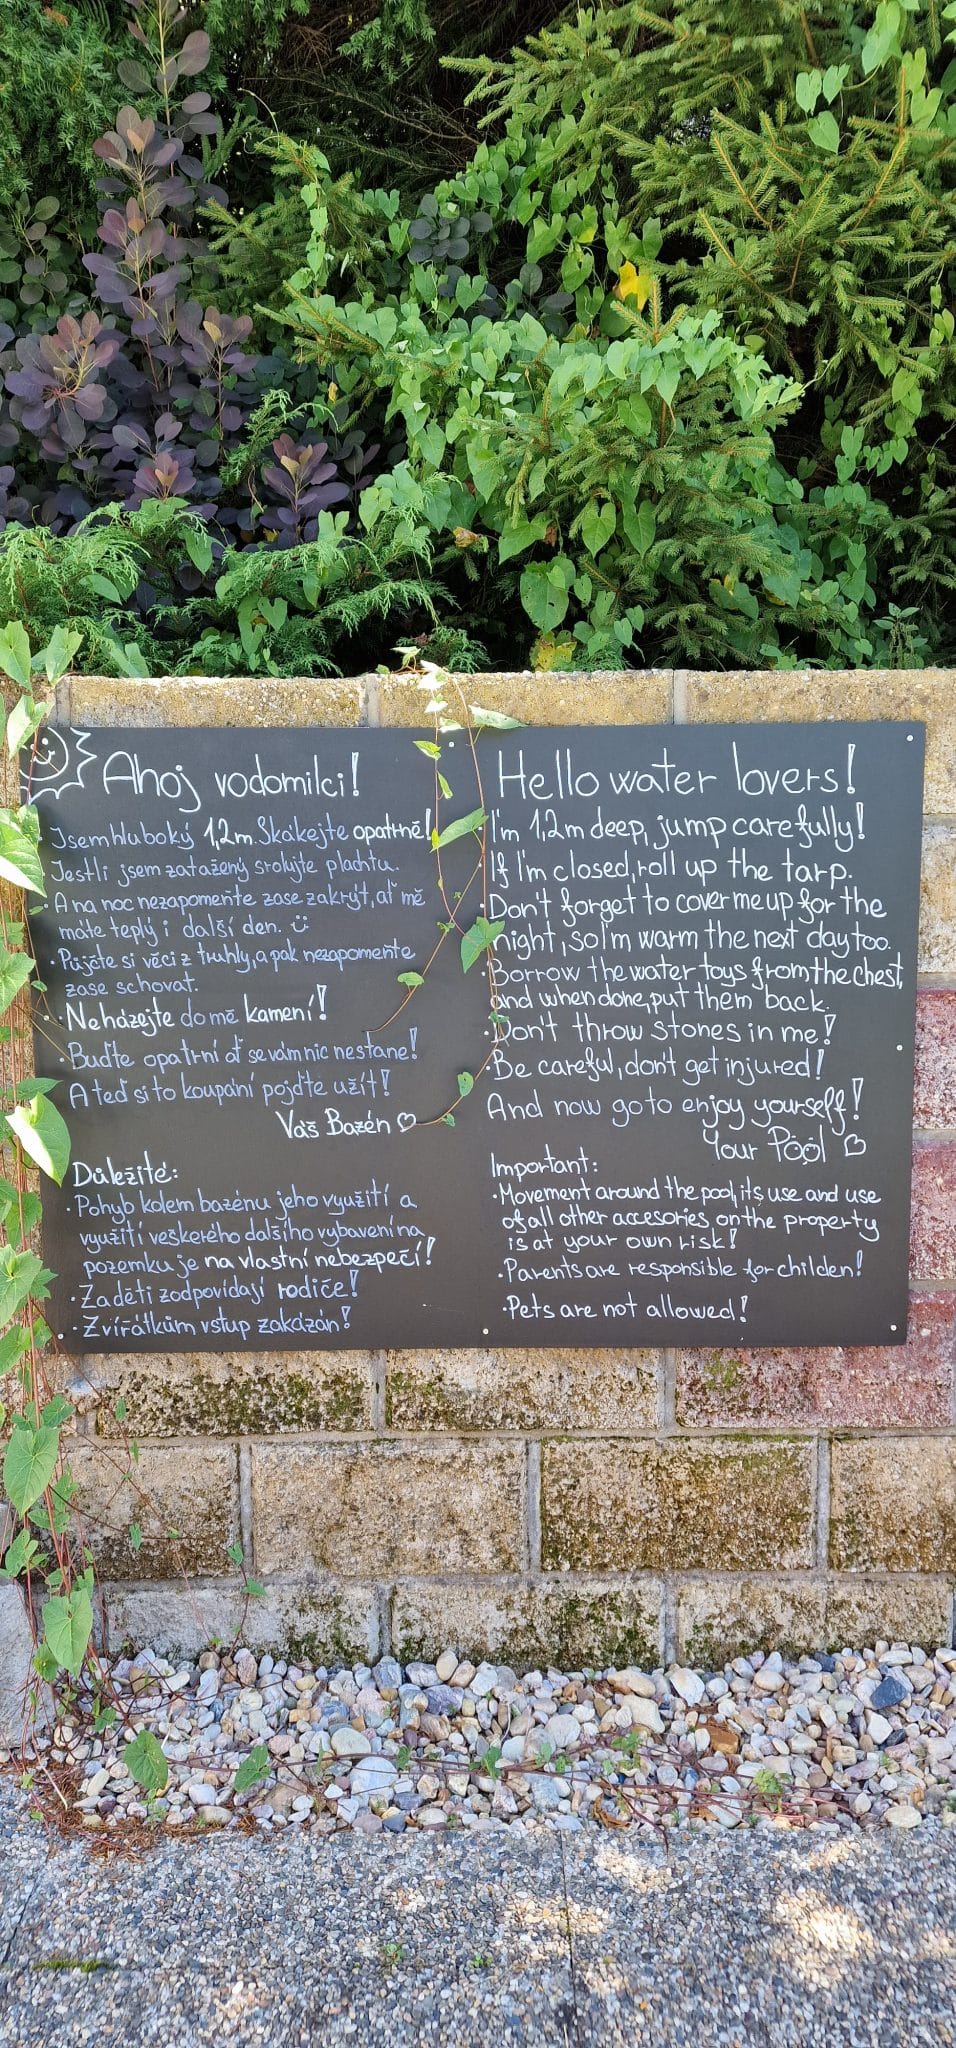 Ahoj vodomilci!
· Jsem hluboký 1,2 m. Skákejte opatrně!
· Jestli jsem zatažený srolujte plachtu.
· A na noc nezapomeňte zase zakrýt, ať mě
máte teplý i další den. ü
· Půjčte si věci z truhly, a pak nezapomeňte
zase schovat.
· Neházejte do mě kamení!
· Buďte opatrní ať se vám nic nestane!
A teď si to koupání pojďte užít!
Váš Bazén ♡
Důležité:
· Pohyb kolem bazénu jeho využití a
využití veškerého dalšího vybavení na
pozemku je na vlastní nebezpečí!
· Za děti zodpovídají rodiče!
· Zvířátkům vstup zakázán!
Hello water lovers!
· I'm 1,2 m deep, jump carefully!
· If I'm closed, roll up the tarp.
· Don't forget to cover me up for the
night, so I'm warm the next day too.
· Borrow the water toys from the chest,
and when done, put them back.
· Don't throw stones in me!
· Be careful, don't get injured!
And now go to enjoy yourself!
Your Pool ♡
Important:
· Movement around the pool, its use and use
of all other accesories on the property
is at your own risk!
· Parents are responsible for childen!
· Pets are not allowed!